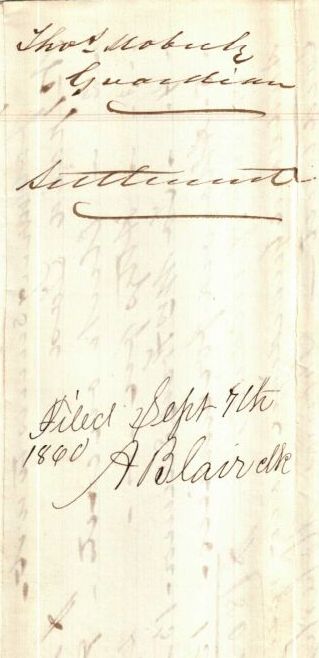 Thos Moberly
Guardian
Settlement
Filed Sept 7th
1860
A Blair clk